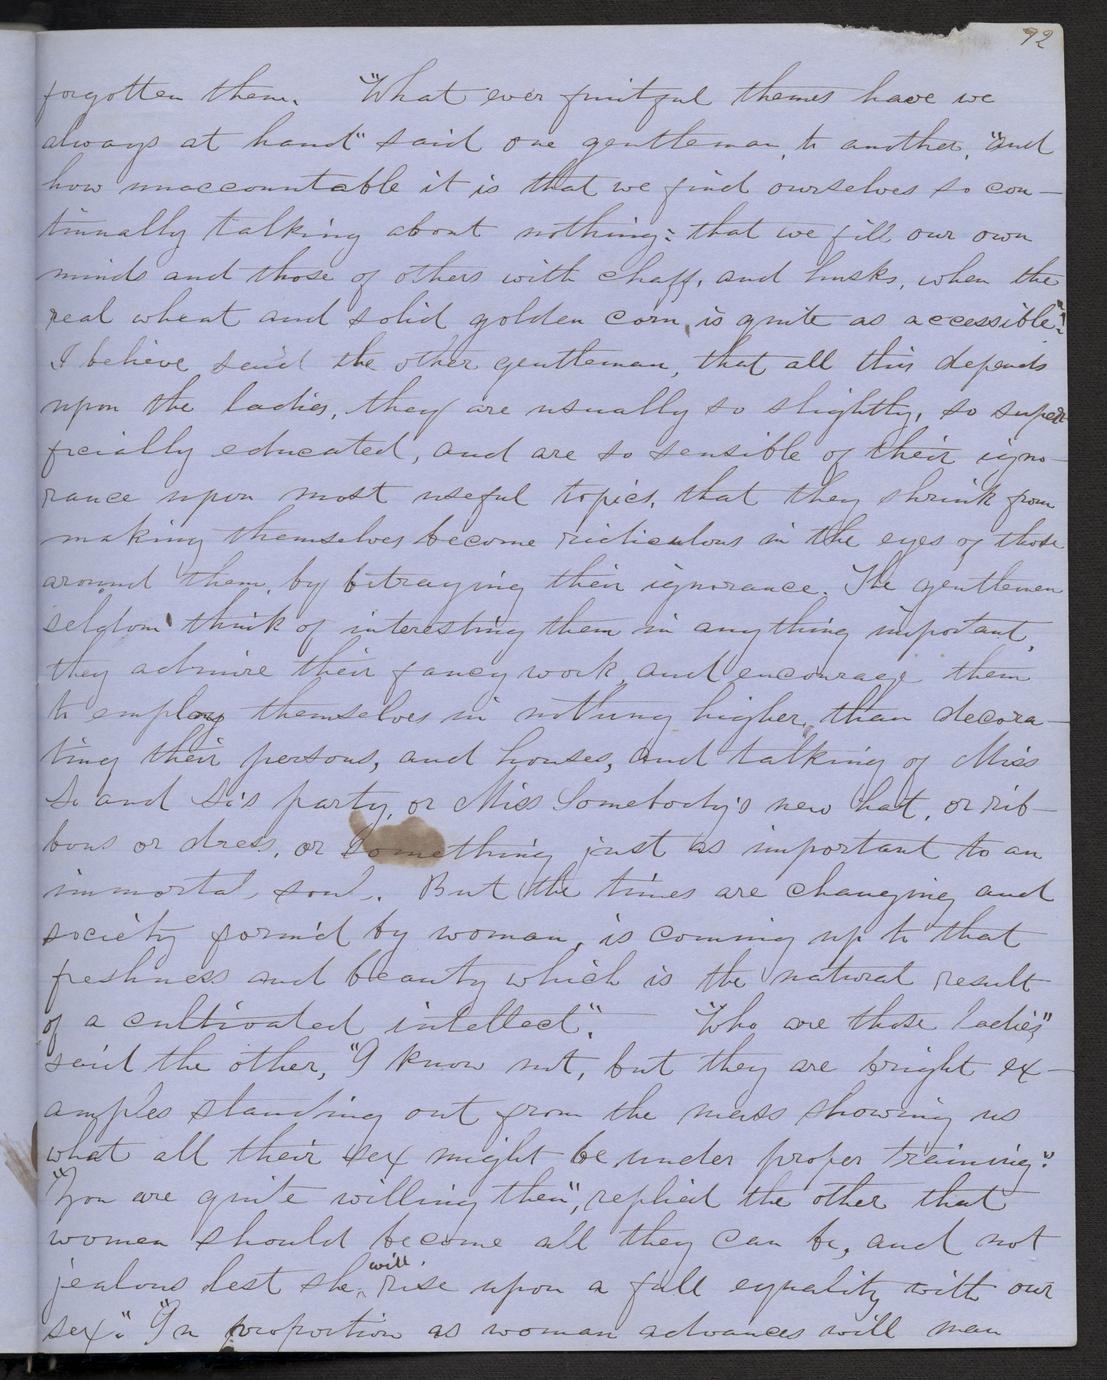 92
forgotten them. "What ever fruitful themes have we
always at hand" said one gentleman, to another, "and
how unaccountable it is that we find ourselves so con-
tinually talking about nothing: that we fill our own
minds and those of others with chaff, and husks, when the
real wheat and solid golden corn, is quite as accessible!"
I believe said the other gentleman, that all this depends
upon the ladies, they are usually so slightly, so super-
ficially educated, and are so sensible of their igno-
rance upon most useful topics, that they shrink from
making themselves become ridiculous in the eyes of those
around them, by betraying their ignorance. The gentlemen
seldom think of interesting them in anything important,
they admire their fancy work, and encourage them
to employ themselves in nothing higher, than decora-
ting their persons, and houses, and talking of Miss
So and So's party, or Miss Somebody's new hat, or rib-
bons or dress, or something just as important to an
immortal soul. But the times are changing and
society form'd by woman, is coming up to that
freshness and beauty which is the natural result
of a cultivated intellect". "Who are those ladies"
said the other, "I know not, but they are bright ex-
amples standing out from the mass showing us
what all their sex might be under proper training".
"You are quite willing then", replied the other that
women should become all they can be, and not
jealous lest she will rise upon a full equality with our
sex". "In proportion as woman advances will man